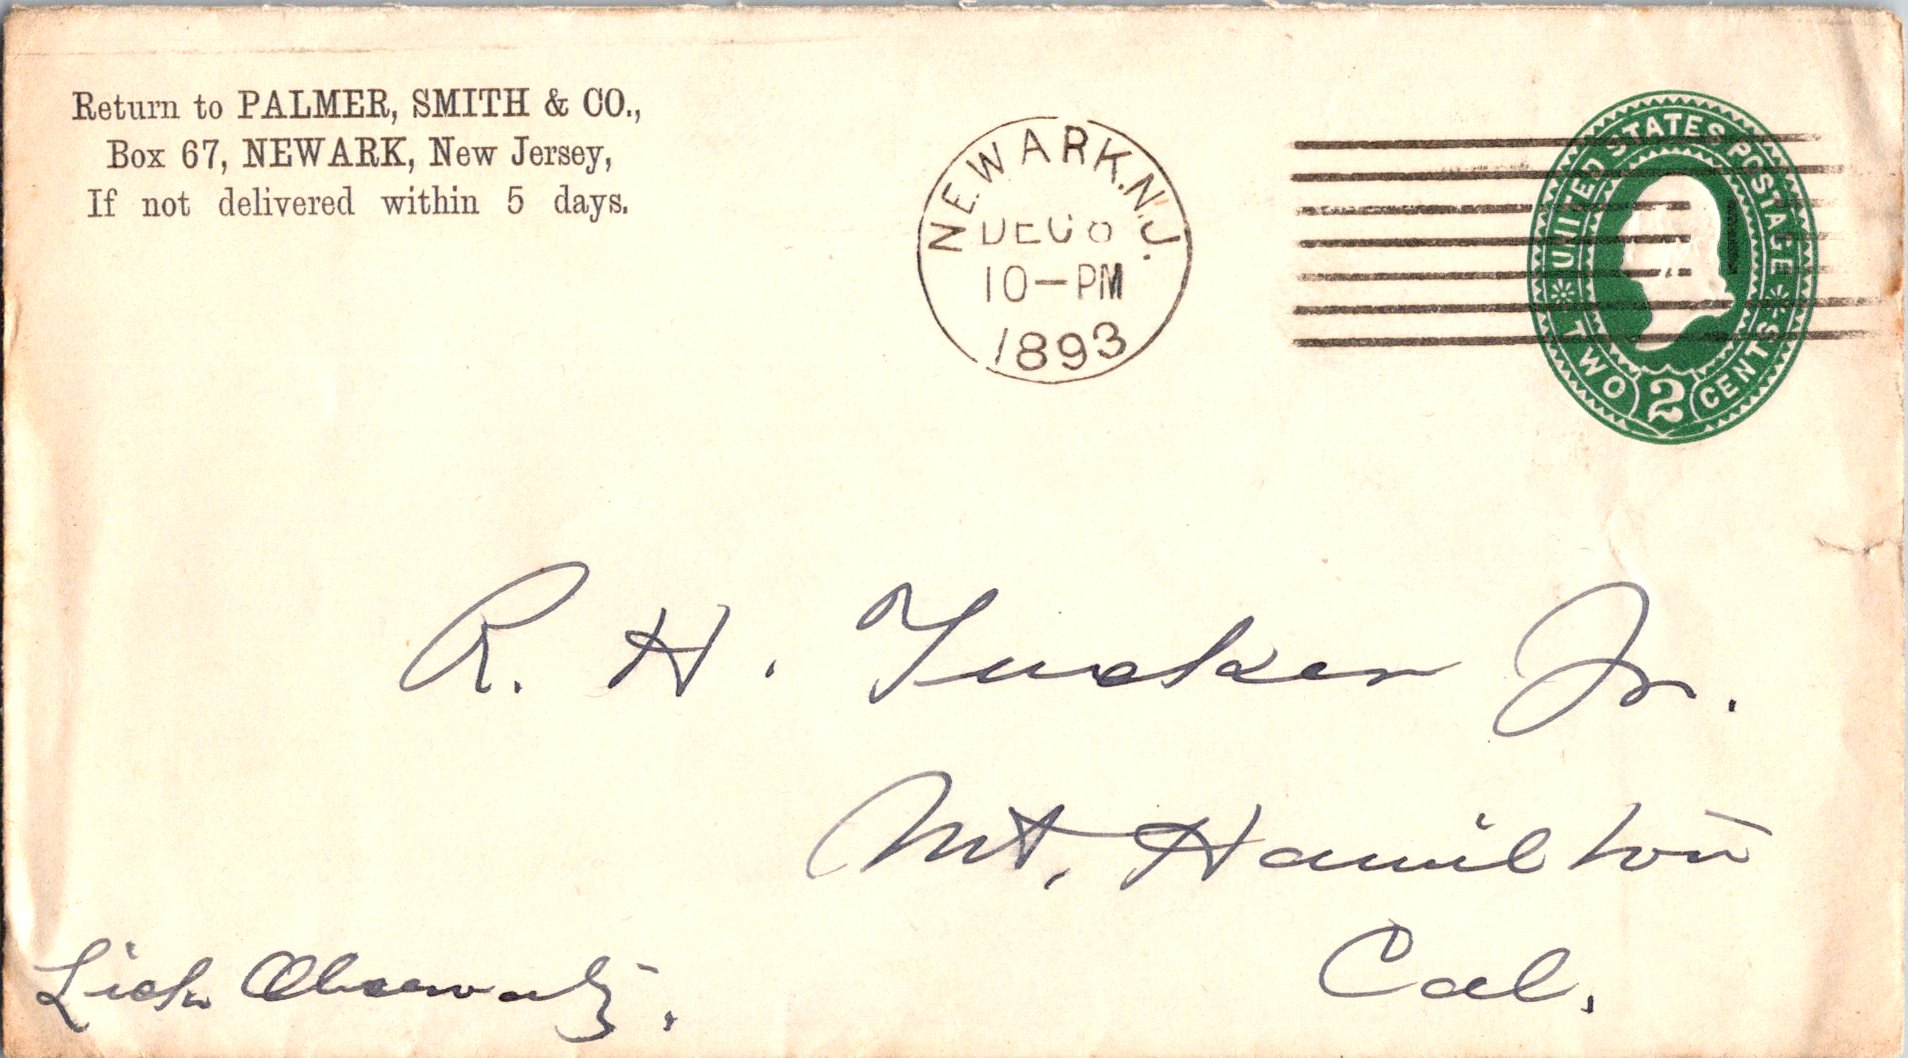 Return to PALMER, SMITH & CO.,
Box 67, NEWARK, New Jersey,
If not delivered within 5 days.
NEWARK.N.J.
DEC 8
10-PM
1893
UNITED STATES POSTAGE
TWO 2 CENTS
1
R. H. Tucker Jr.
Mt. Hamilton
Cal.
Lick Observat'y.